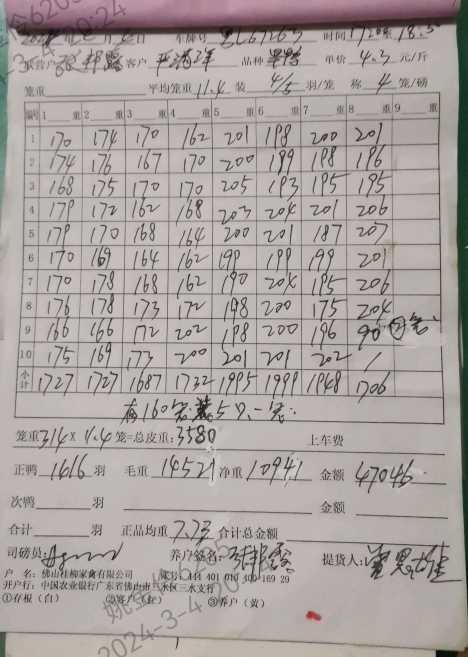 车牌号 时间
客户 品种 单价 4.3 元/斤
笼重 平均笼重 11.4 装 4/5 羽/笼 称 4 笼/磅
编号 1 重 2 重 3 重 4 重 5 重 6 重 7 重 8 重 9 重
1 170 174 170 162 201 198 200 201
2 174 176 167 170 200 199 198 196
3 168 175 170 170 205 193 195 195
4 179 172 162 168 203 204 201 206
5 179 170 168 164 200 201 187 207
6 170 169 164 162 199 199 199 201
7 170 178 168 162 190 204 195 206
8 176 178 173 172 198 200 175 204
9 166 166 172 202 198 200 196 90
10 175 169 173 200 201 201 202 /
小计 1727 1727 1687 1732 1995 1999 1948 1706
有160笼装5只.一笼.
笼重 314 × 11.4 笼=总皮重: 3580 上车费
正鸭 1616 羽 毛重 14521 净重 10941 金额 47046
次鸭 羽 金额
合计 羽 正品均重 7.73 合计总金额
司磅员: 养户签名: 提货人:
户 名: 佛山桂柳家禽有限公司 账号: 444 401 010 400 169 29
开户行: 中国农业银行广东省佛山市三水区三水支行
①存根(白) ②客户(红) ③养户(黄)
2024-3-4